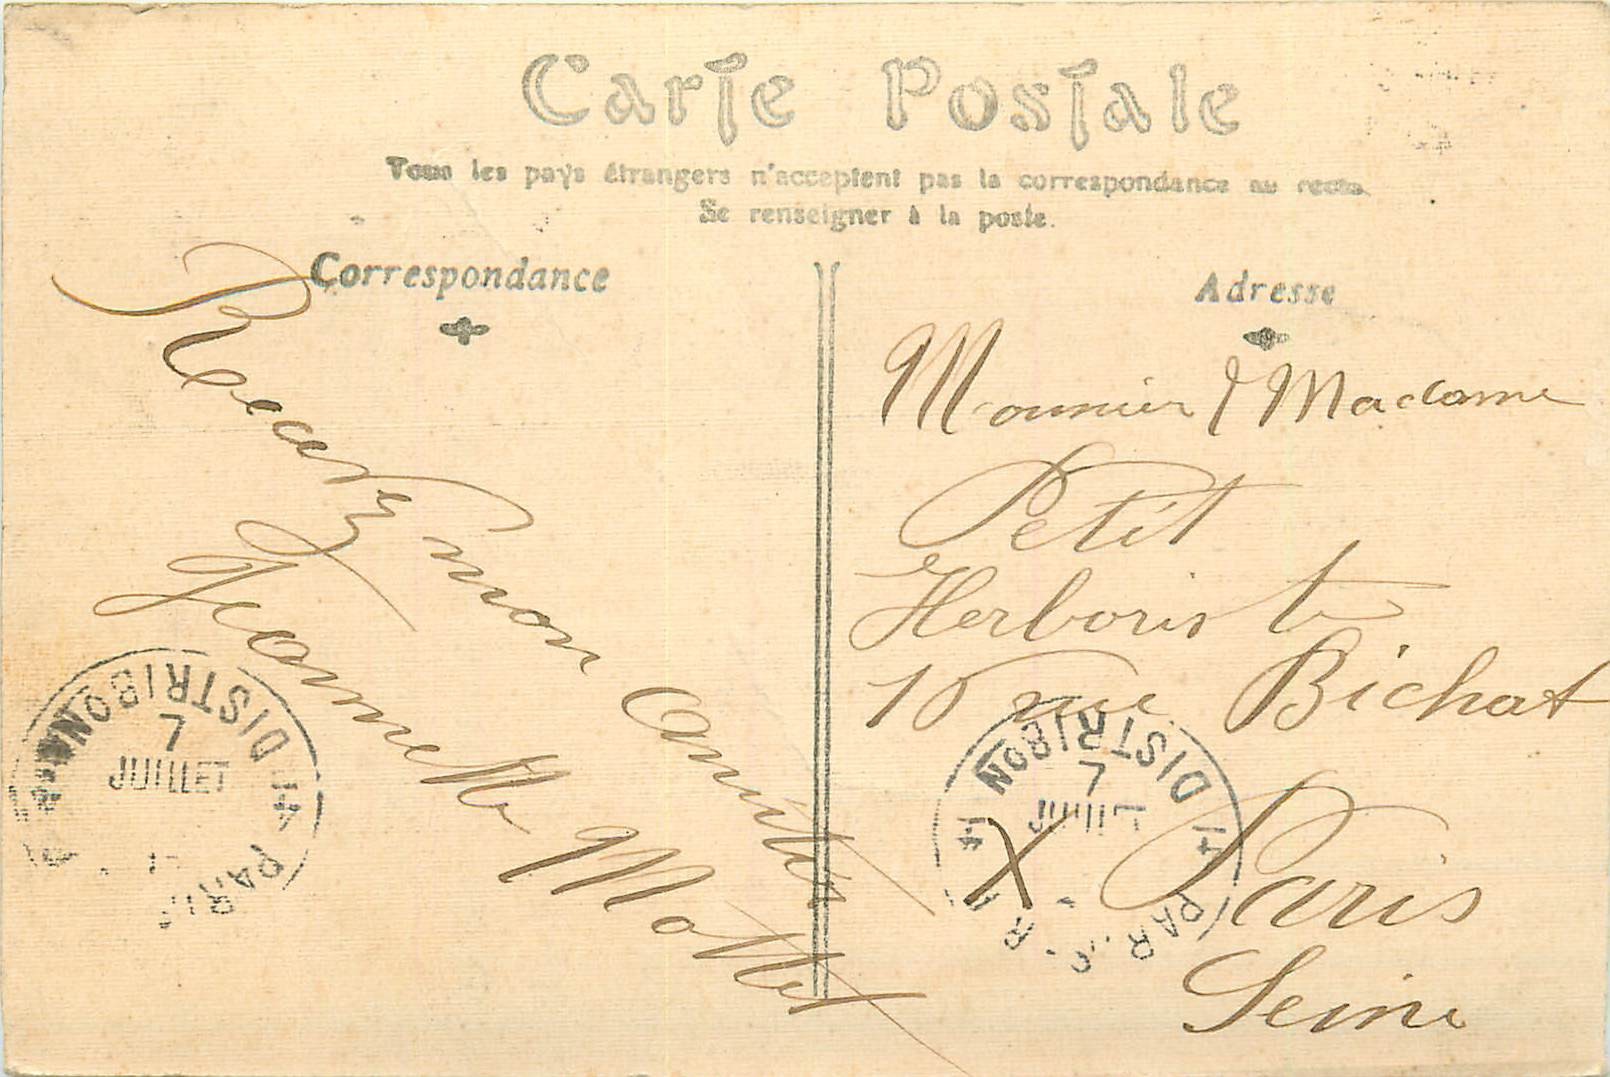 Carte Postale
Tous les pays étrangers n'acceptent pas la correspondance au recto.
Se renseigner à la poste.
Correspondance
Recevez mon amitié
Jeannette Mottet
Adresse
Monsieur & Madame
Petit
Herboriste
10 rue Bichat
Paris
Seine
DISTRIBON
7
JUILLET
PARIS
DISTRIBON
7
PAR